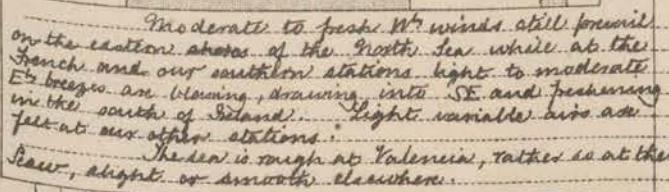 Moderate to fresh Wly winds still prevail
on the eastern shores of the North Sea while at the
French and our southern stations light to moderate
Ely breezes are blowing, drawing into SE and freshening
in the south of Ireland. Light variable airs are
felt at our other stations.
The sea is rough at Valencia, rather so at the
Scaw, slight or smooth elsewhere.